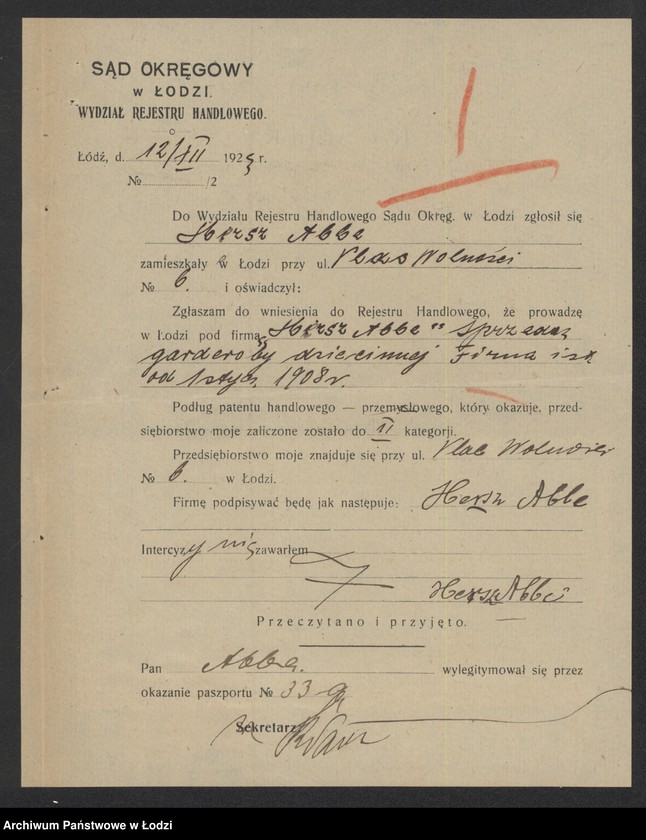 SĄD OKRĘGOWY
w ŁODZI.
WYDZIAŁ REJESTRU HANDLOWEGO.
Łódź, d. 12/XII 1925 r.
№ /2
Do Wydziału Rejestru Handlowego Sądu Okręg. w Łodzi zgłosił się
Hersz Abbe
zamieszkały w Łodzi przy ul. Plac Wolności
№ 6. i oświadczył:
Zgłaszam do wniesienia do Rejestru Handlowego, że prowadzę
w Łodzi pod firmą „Hersz Abbe" Sprzedaż
garderoby dziecinnej Firma ist
od 1 stycz 1908 r.
Podług patentu handlowego — przemysłowego, który okazuje, przed-
siębiorstwo moje zaliczone zostało do II kategorji.
Przedsiębiorstwo moje znajduje się przy ul. Plac Wolności
№ 6. w Łodzi.
Firmę podpisywać będę jak następuje: Hersz Abbe
Intercyzy nie zawarłem
Hersz Abbe
Przeczytano i przyjęto.
Pan Abbe. wylegitymował się przez
okazanie paszportu № 33
Sekretarz
Archiwum Państwowe w Łodzi